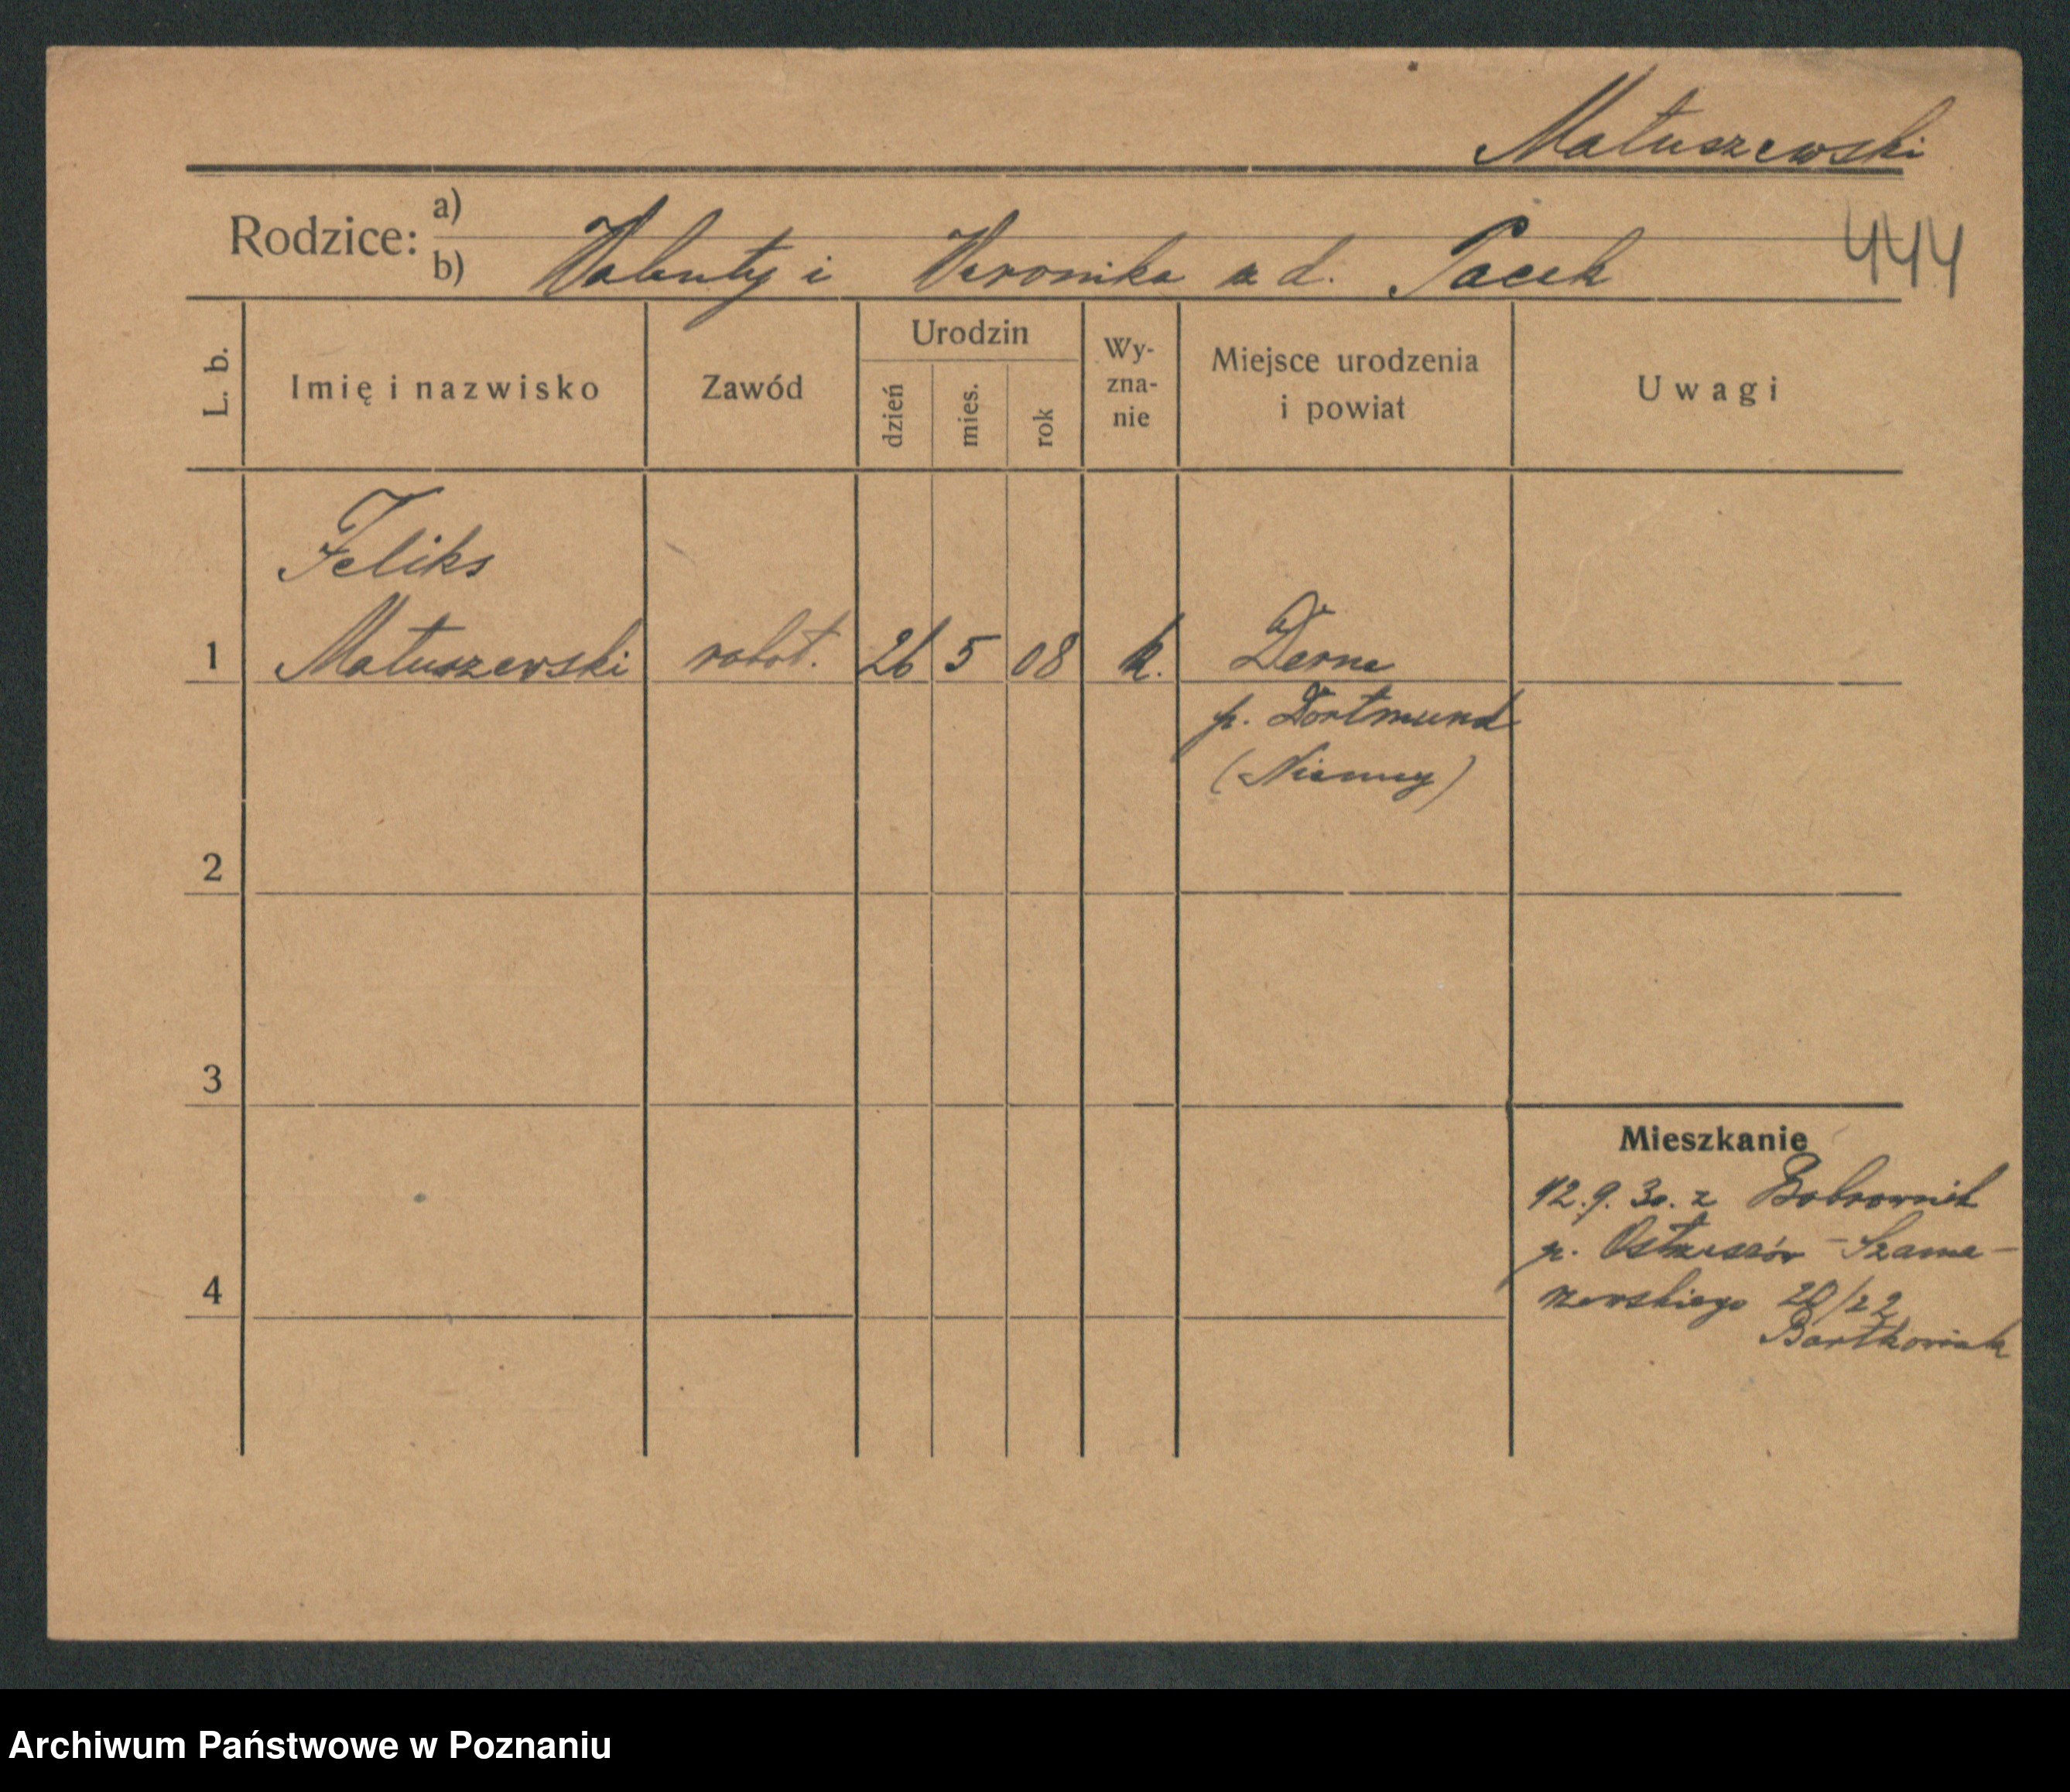 Matuszewski
Rodzice: a)
b) Walenty i Weronika z d. Pacek
444
L. b.
Imię i nazwisko
Zawód
Urodzin
dzień
mies.
rok
Wy-
zna-
nie
Miejsce urodzenia
i powiat
Uwagi
Feliks
1 Matuszewski robot. 26 5 08 k. Derne
p. Dortmund
(Niemcy)
2
3
Mieszkanie
12.9.30. z Bobrownik
p. Ostrzeszów - Szama-
rzewskiego 20/22
4
Bartkowiak
Archiwum Państwowe w Poznaniu